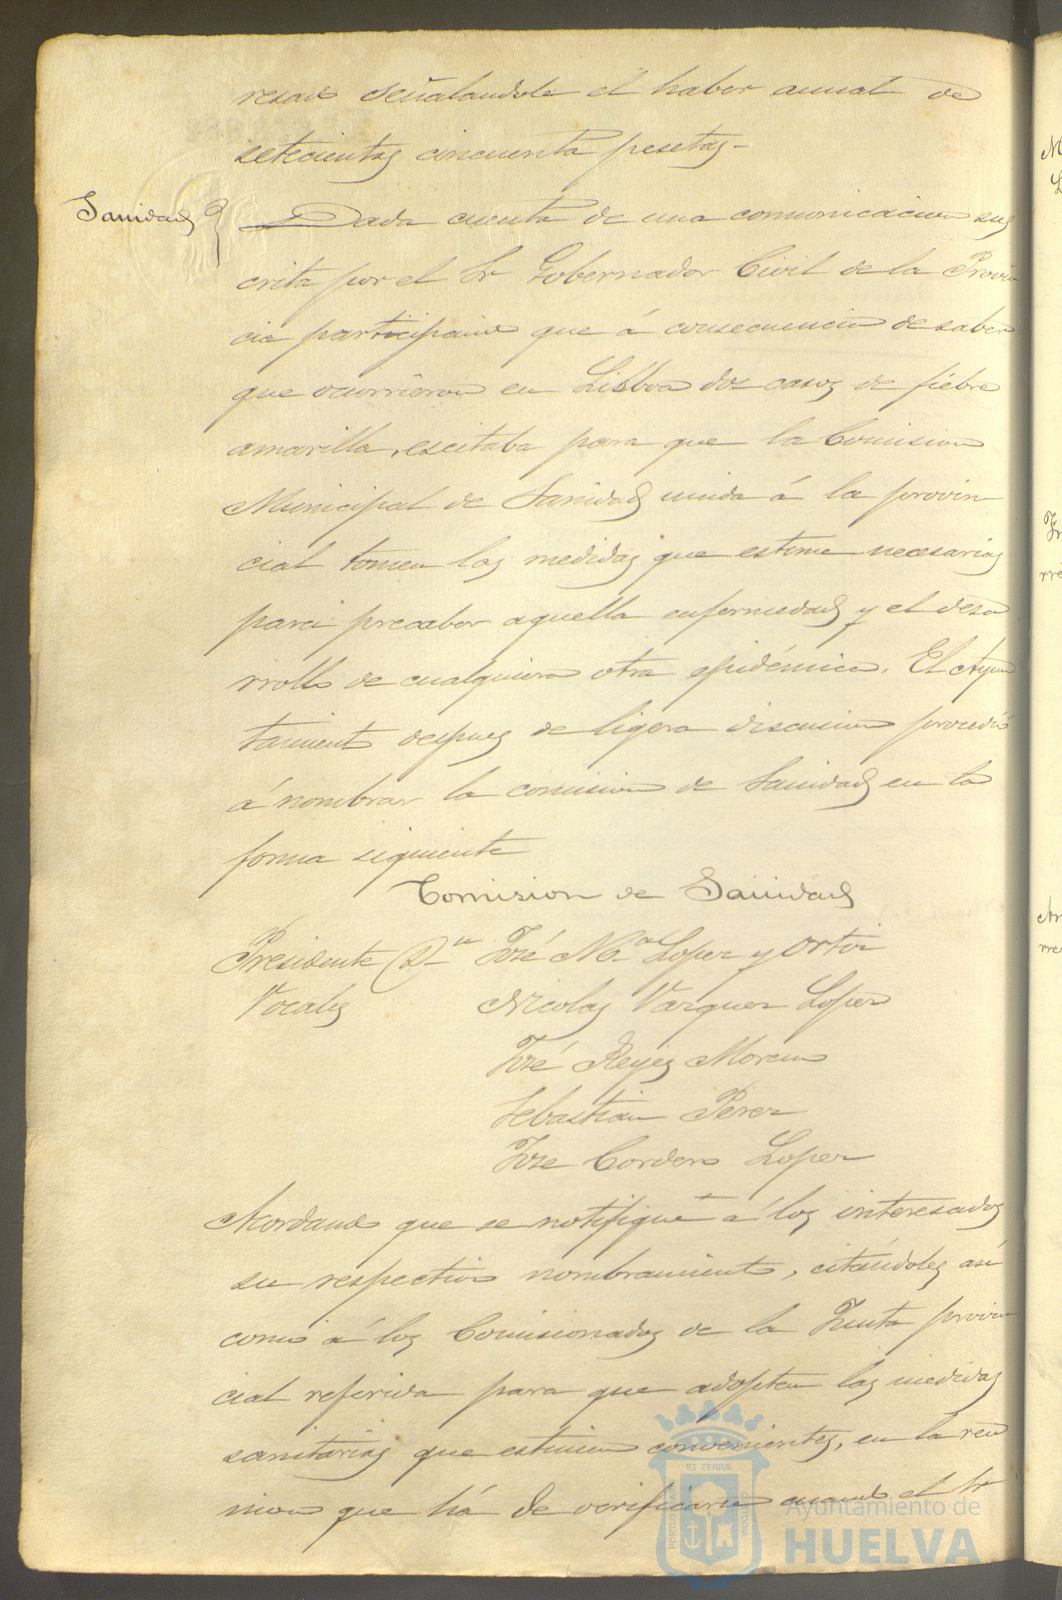 resado señalandole el haber anual de
setecientas cincuenta pesetas-
Sanidad
Dada cuenta de una comunicacion sus
crita por el Sr Gobernador Civil de la Provin
cia participando que á consecuencia de saber
que ocurrieron en Lisboa dos casos de fiebre
amarilla, escitaba para que la Comision
Municipal de Sanidad unida á la provin
cial tomen las medidas que estime necesarias
para precaber aquella enfermedad y el desa
rrollo de cualquiera otra epidémica. El Ayun
tamiento despues de ligera discusion procedió
á nombrar la comision de Sanidad en la
forma siguiente
Comision de Sanidad
Presidente Dn José Ma Lopez y Ortiz
Vocales Nicolas Vazquez Lopez
José Reyes Moreno
Sebastian Perez
Jose Cordero Lopez
Acordando que se notifique á los interesados
su respectivo nombramiento, citándoles así
como á los Comisionados de la Junta provin
cial referida para que adopten las medidas
sanitarias que estimen convenientes, en la reu
nion que há de verificarse cuando el Sr
Ayuntamiento de
HUELVA